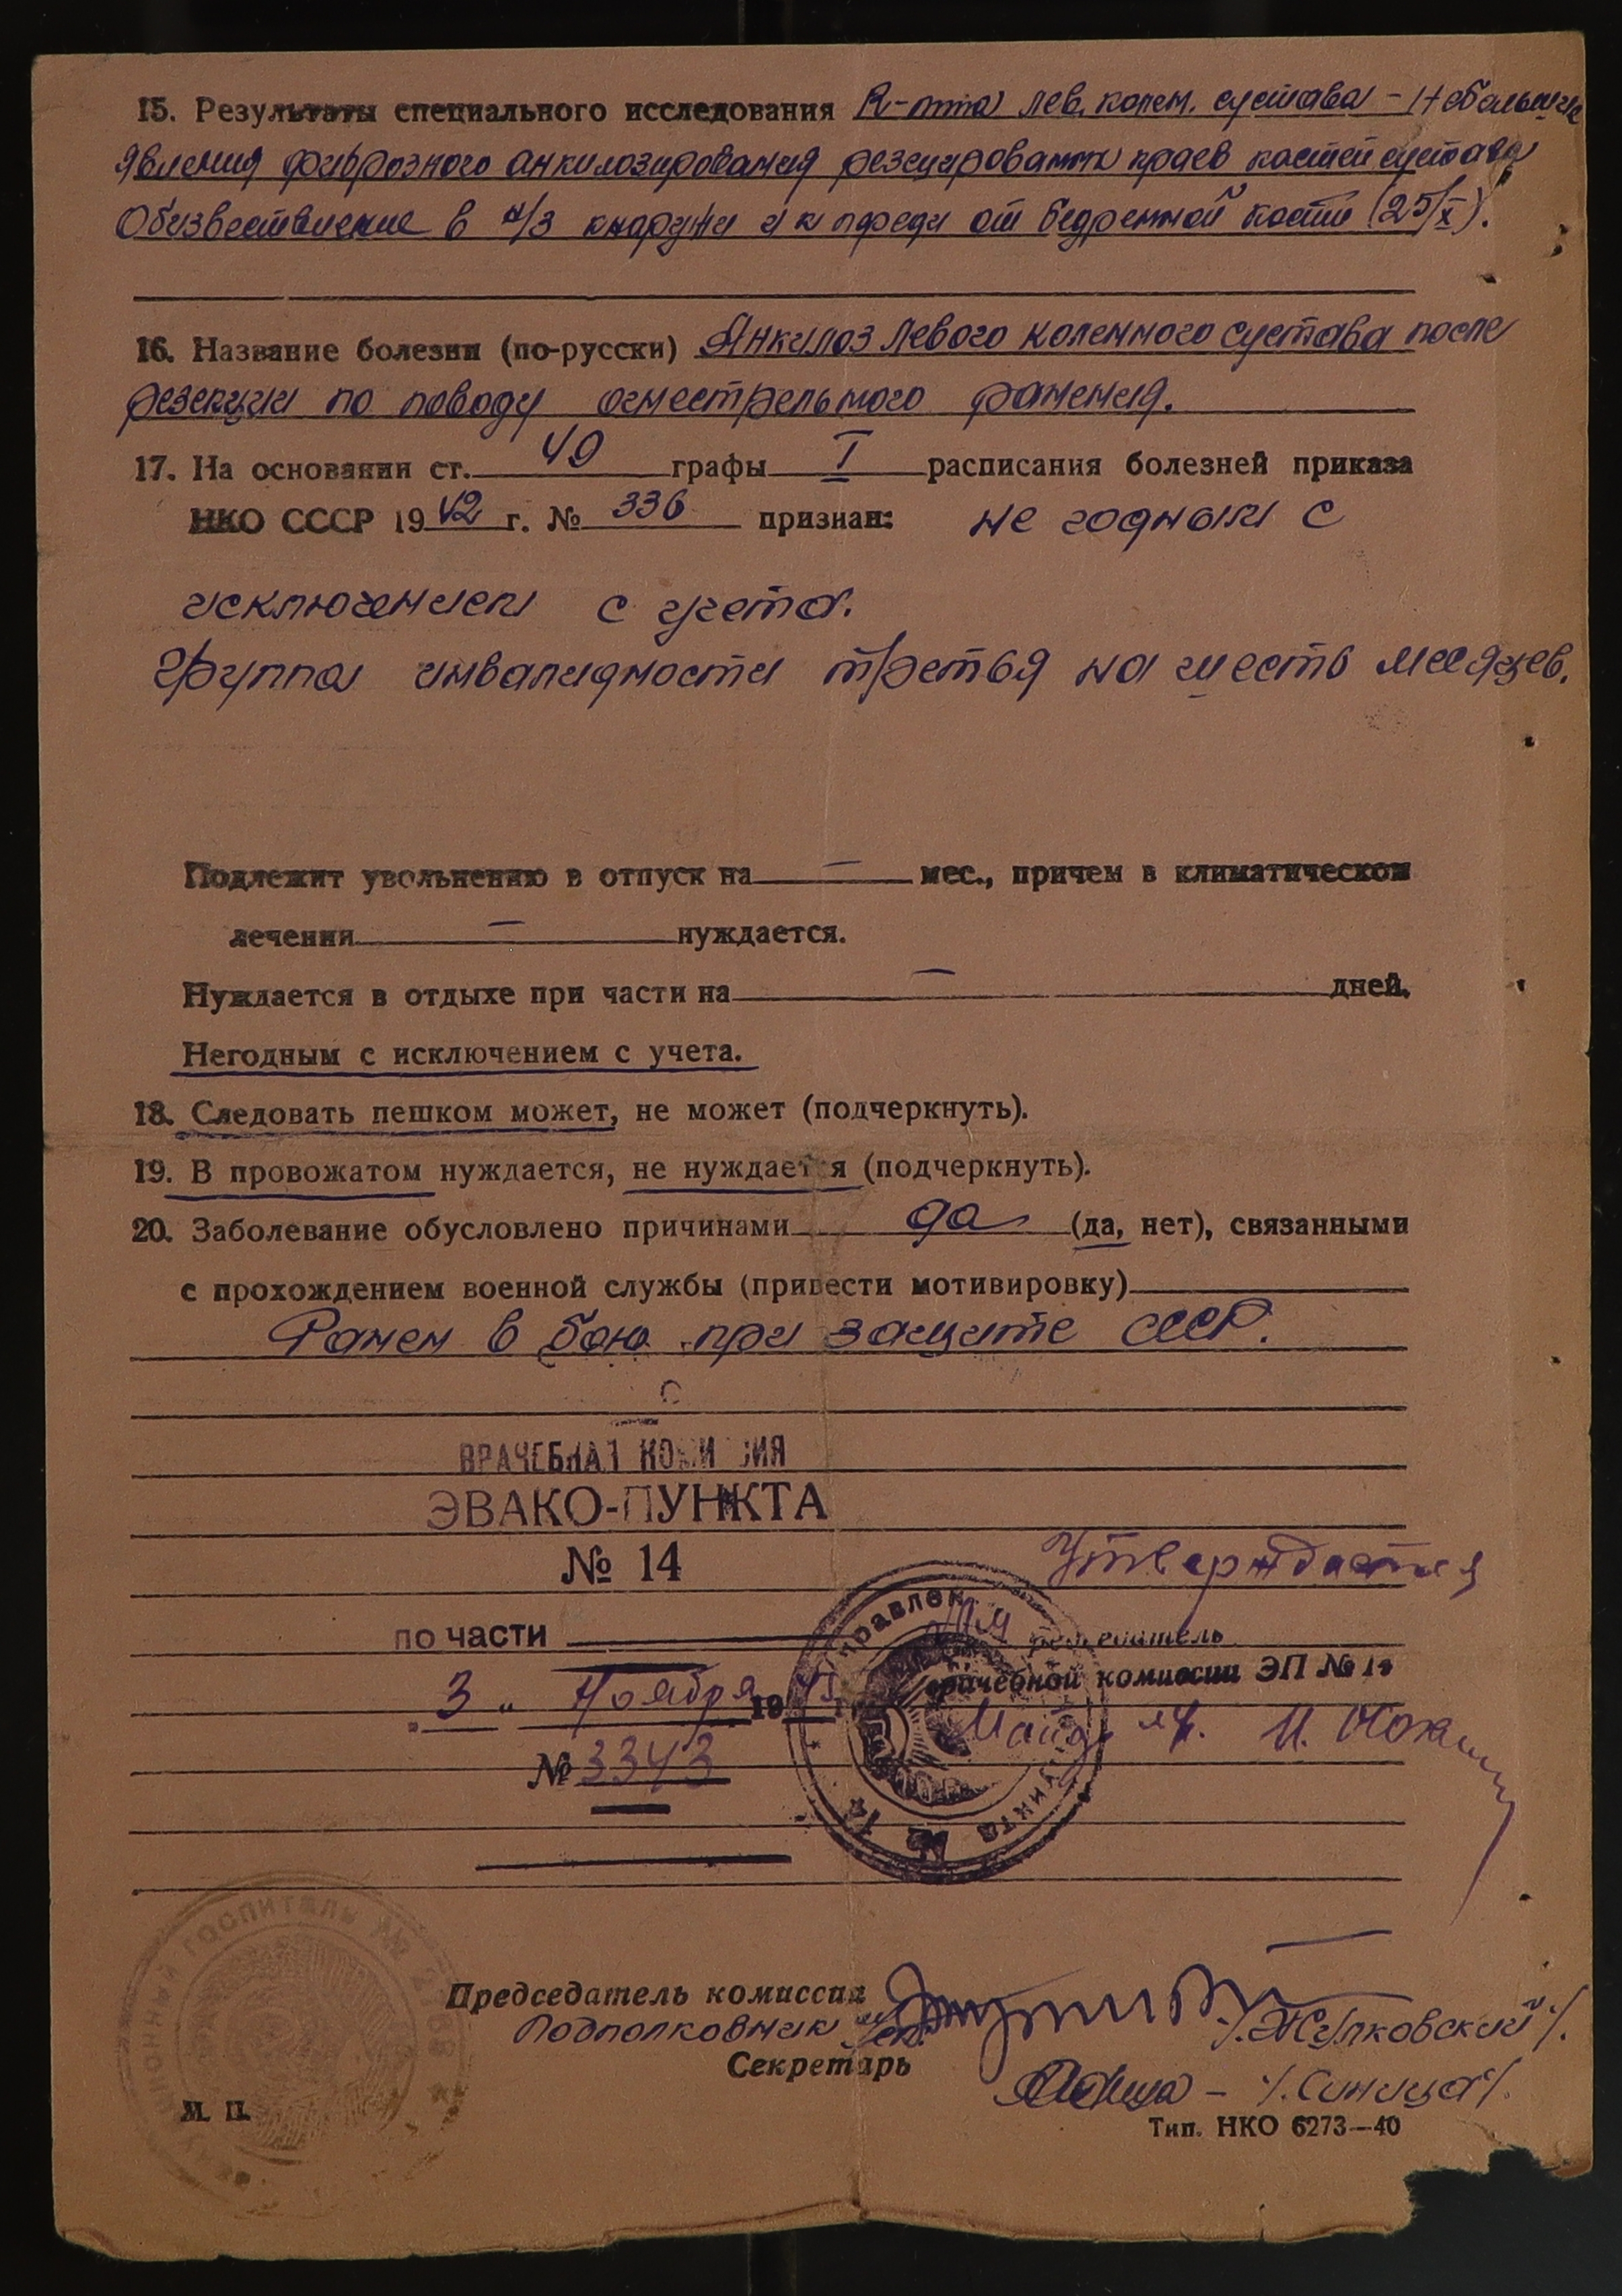 15. Результаты специального исследования R-мма лев. колен. сустава – Небольшие
явления фиброзного анкилозирования резецированных краев костей сустава
Обызвествление в н/з кнаружи и к переди от бедренной кости (25/X).
16. Название болезни (по-русски) Анкилоз левого коленного сустава после
резекции по поводу огнестрельного ранения.
17. На основании ст. 49 графы I расписания болезней приказа
НКО СССР 1942 г. № 336 признан: не годным с
исключением с учета.
Группа инвалидности третья на шесть месяцев.
Подлежит увольнению в отпуск на — мес., причем в климатическом
лечении — нуждается.
Нуждается в отдыхе при части на — дней.
Негодным с исключением с учета.
18. Следовать пешком может, не может (подчеркнуть).
19. В провожатом нуждается, не нуждается (подчеркнуть).
20. Заболевание обусловлено причинами да (да, нет), связанными
с прохождением военной службы (привести мотивировку)
Ранен в бою при защите СССР.
ВРАЧЕБНАЯ КОМИССИЯ
ЭВАКО-ПУНКТА
№ 14
Утверждается
по части
председатель
врачебной комиссии ЭП № 14
„3„ Ноября 19
Майор
№ 3343
ГОСПИТАЛЬ №
Председатель комиссии
Подполковник /Жулковский/.
Секретарь
– /.Синица/.
М. П.
Тип. НКО 6273—40